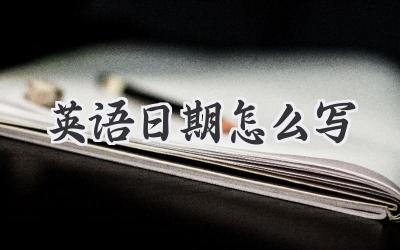 英语日期怎么写